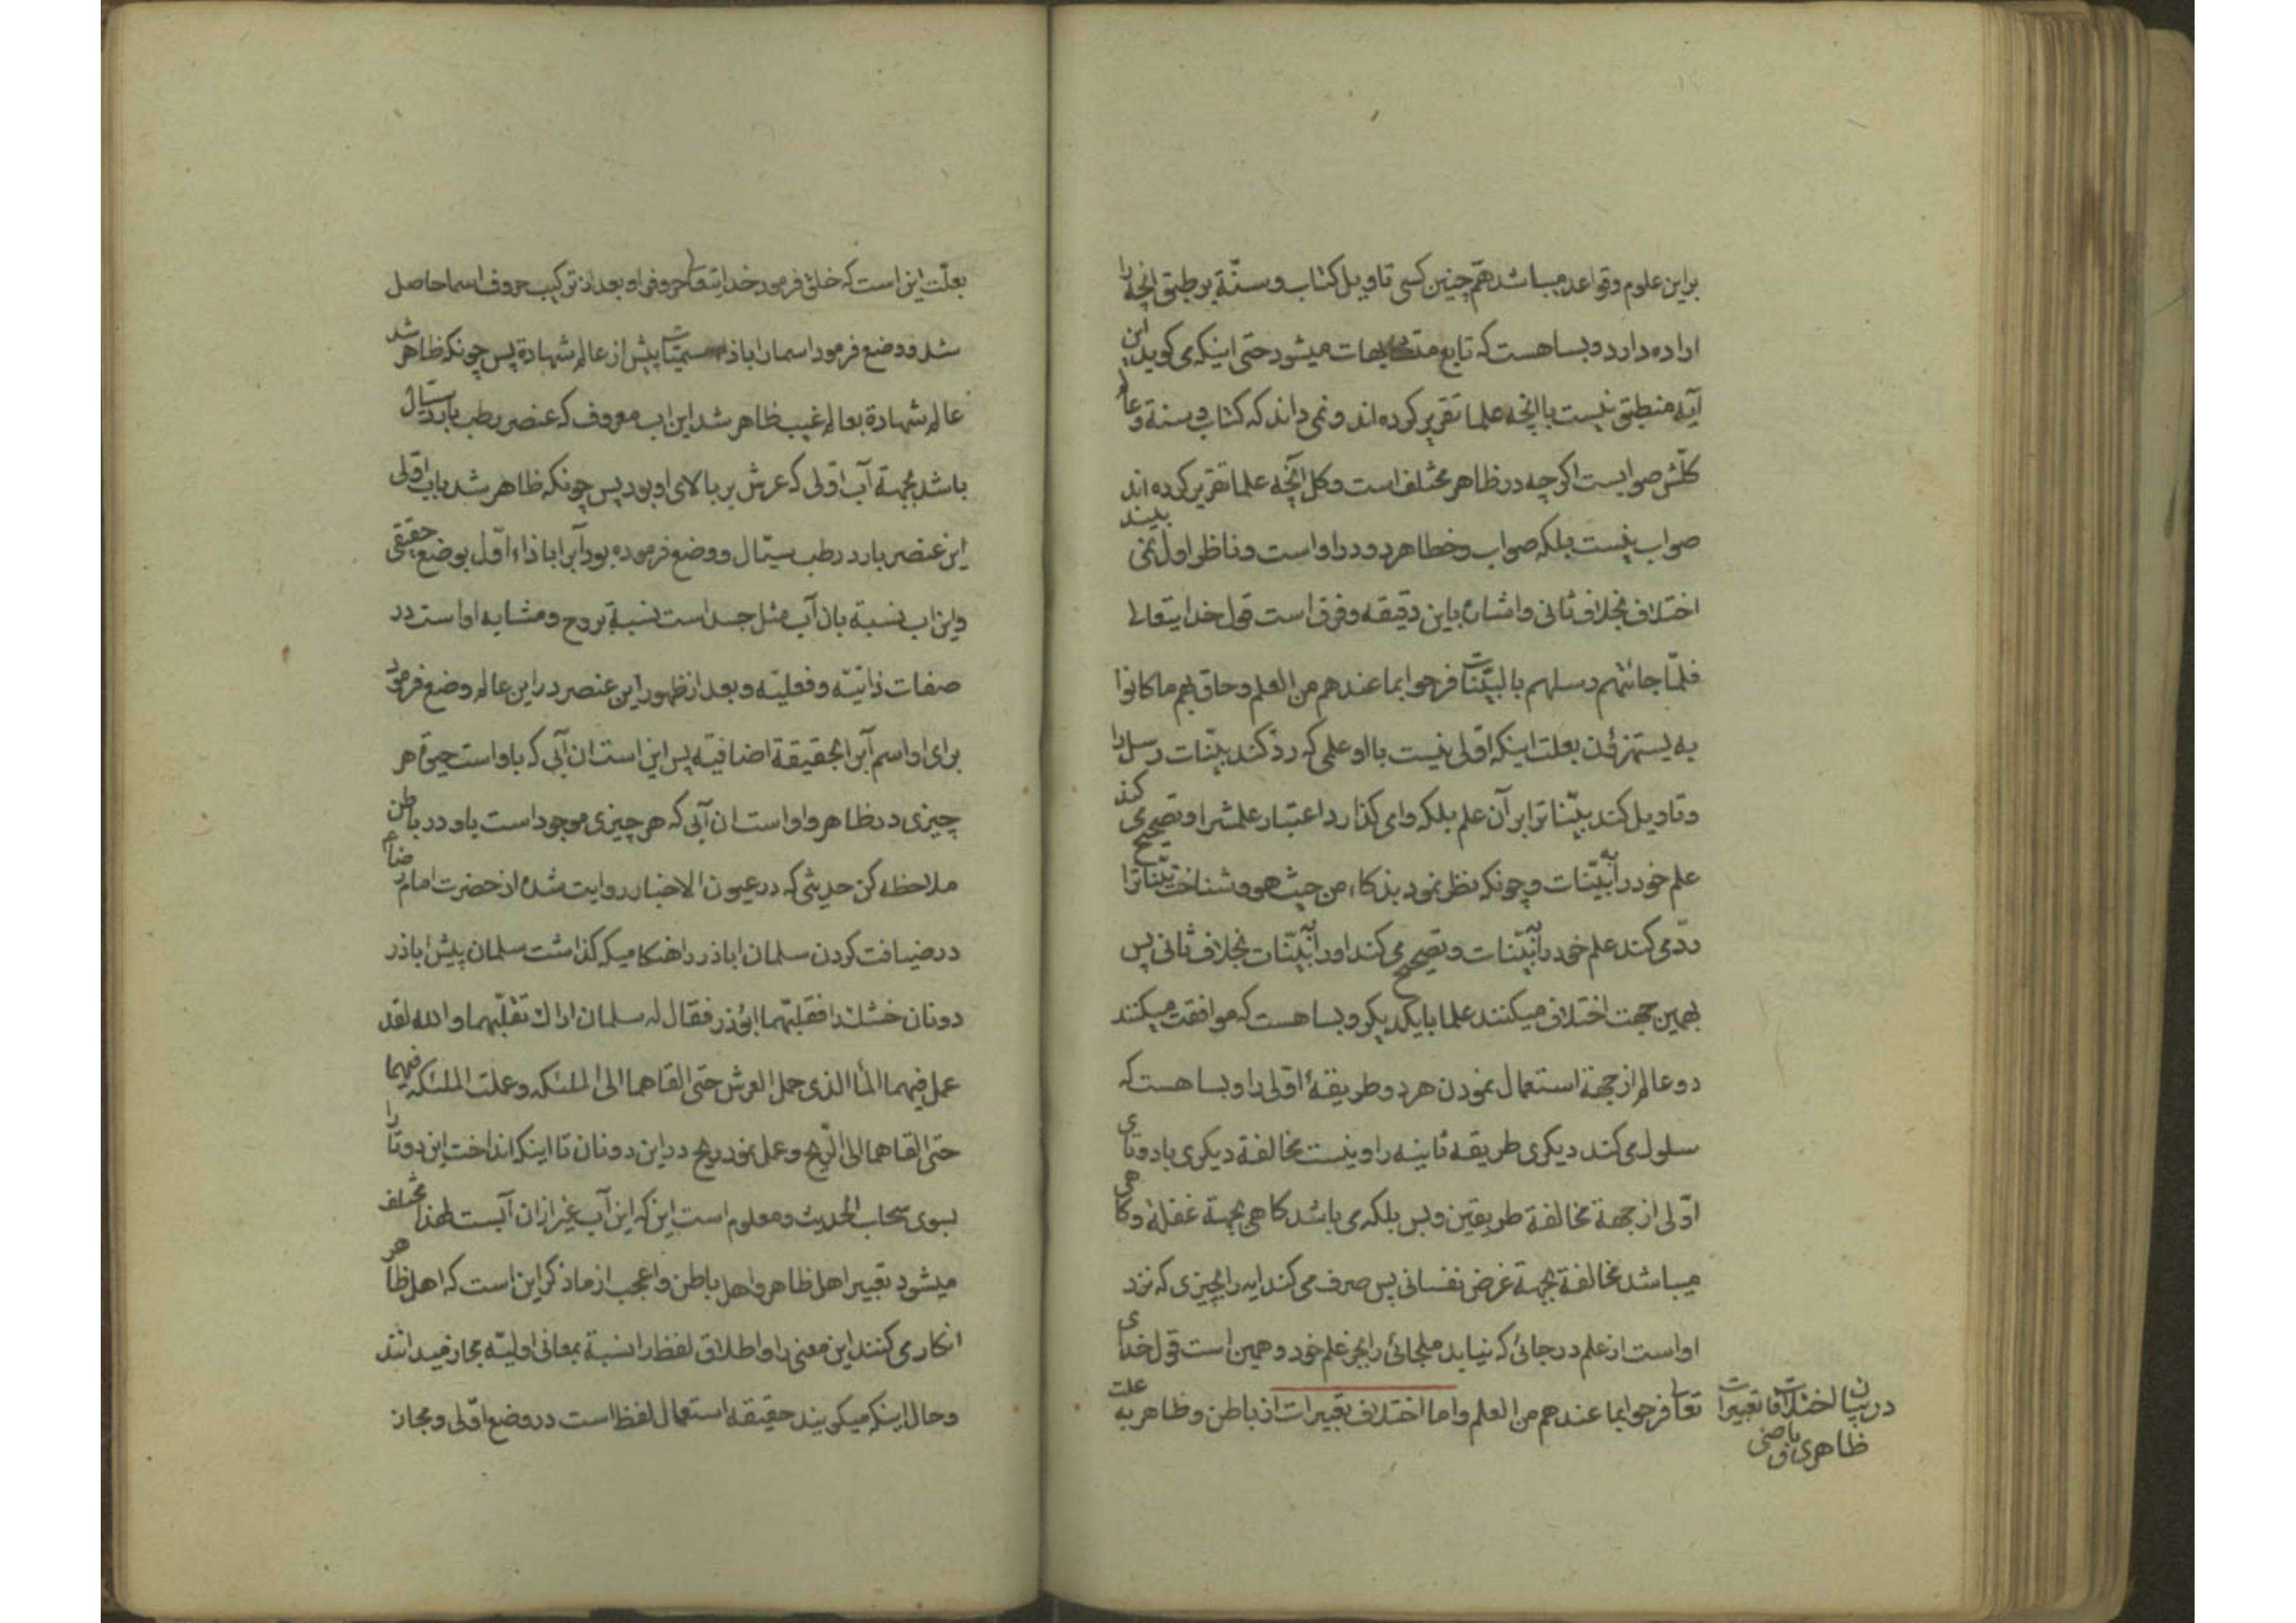 براین علوم وقواعد میباشد همچنین کسی تاویل کتاب وسنّة بر طبق انچه را
اراده دارد و بسا هست که تابع میشود حتی اینکه می کوید این
آیه منطبق نیست باانچه علما تقریر کرده اند ونمی داند که کتاب وسنة وعالم
کلّش صوابست اکرچه در ظاهر مختلف است وکل آنچه علما تقریر کرده اند
صواب نیست بلکه صواب وخطا هردو در او است وناظر اول نمی بیند
اختلاف بخلاف ثانی واشاره باین دقیقه وفرق است قول خدایتعالی
فلمّا جائتهم رسلهم بالبیّنات فرحوا بما عندهم من العلم وحاق بهم ما کانوا
به یستهزؤن بعلت اینکه اوّلی نیست بااو علمی که ردّ کند بیّنات رسل را
وتاویل کند بیّنات را بر آن علم بلکه وا می کذارد اعتبار علمش را وتصحیح می کند
علم خود را به بیّنات وچونکه نظر نمود بذکاء من حیث هو وشناخت بیّنات را
ردّ می کند علم خود را به بیّنات وتصحیح می کند اورا به بیّنات بخلاف ثانی پس
بهمین جهت اختلاف میکنند علما بایکدیکر وبسا هست که موافقت میکنند
دو عالم از جهة استعمال نمودن هردو طریقهٔ اوّلی را وبسا هست که
سلوک می کند دیکری طریقه ثانیه را ونیست مخالفة دیکری با دوتای
اوّلی از جهة مخالفة طریقین وبس بلکه می باشد کاهی بجهة غفلة وکاهی
میباشد مخالفة بجهة غرض نفسانی پس صرف می کند ایه را بچیزی که نزد
اواست از علم در جائی که نیابد ملجائی را بجز علم خود وهمین است قول خدای
تعالی فرحوا بما عندهم من العلم واما اختلاف تعبیرات از باطن وظاهر به علت
در بیان اختلافات تعبیرات
ظاهری و باطنی
بعلّت این است که خلق فرمود خدایتعالی حروفرا وبعد از ترکیب حروف اسما حاصل
شد ووضع فرمود اسمارا باذاء مسمیّات پیش از عالم شهادة پس چونکه ظاهر شد
عالم شهادة بعالم غیب ظاهر شد این اب معروف که عنصر رطب بارد سیّال
باشد بجهة آب اوّلی که عرش بر بالای او بود پس چونکه ظاهر شد باب اوّلی
این عنصر بارد رطب سیّال ووضع فرموده بود آب را باذاء اوّل بوضع حقیقی
واین اب نسبة بان آب مثل جسد است نسبة بروح ومشابه او است در
صفات ذاتیّه وفعلیّه وبعد از ظهور این عنصر در این عالم وضع فرمود
برای او اسم آب را بحقیقة اضافیّه پس این است ان آبی که باواست حیوة هر
چیزی در ظاهر واواست ان آبی که هر چیزی موجود است باو در باطن
ملاحظه کن حدیثی که در عیون الاخبار روایت شده از حضرت امام رضا ع
در ضیافت کردن سلمان اباذر را هنکامیکه کذاشت سلمان پیش اباذر
دونان خشک را فقلبّهما ابوذر فقال له سلمان اراک تقلّبهما والله لقد
عمل فیهما الماء الذی حمل العرش حتی القاهما الی الملئکه وعملت الملئکه فیهما
حتی القاهما الی الرّیح وعمل نمود ریح در این دونان تا اینکه انداخت این دوتا را
بسوی سحاب الحدیث ومعلوم است این که این آب غیر از ان آبست لهذا مختلف
میشود تعبیر اهل ظاهر واهل باطن واعجب از ما ذکر این است که اهل ظاهر
انکار می کنند این معنی را واطلاق لفظ را نسبة بمعانی اولیّه مجاز میدانند
وحال اینکه میکویند حقیقه استعمال لفظ است در وضع اوّلی ومجاز